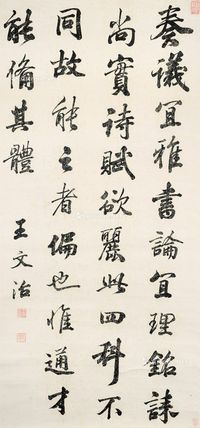 奏議宜雅書論宜理銘誄
尚實詩賦欲麗此四科不
同故能之者偏也惟通才
能備其體
王文治